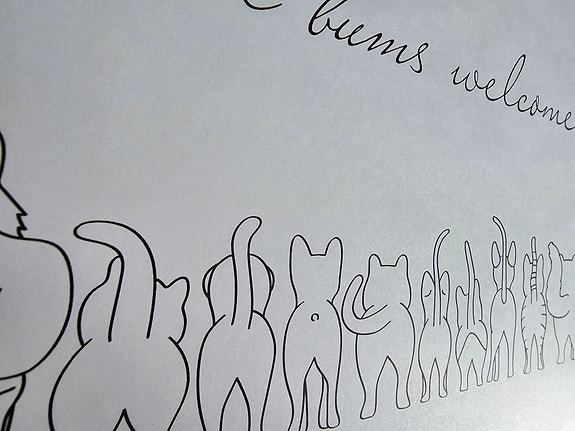 bums welcome